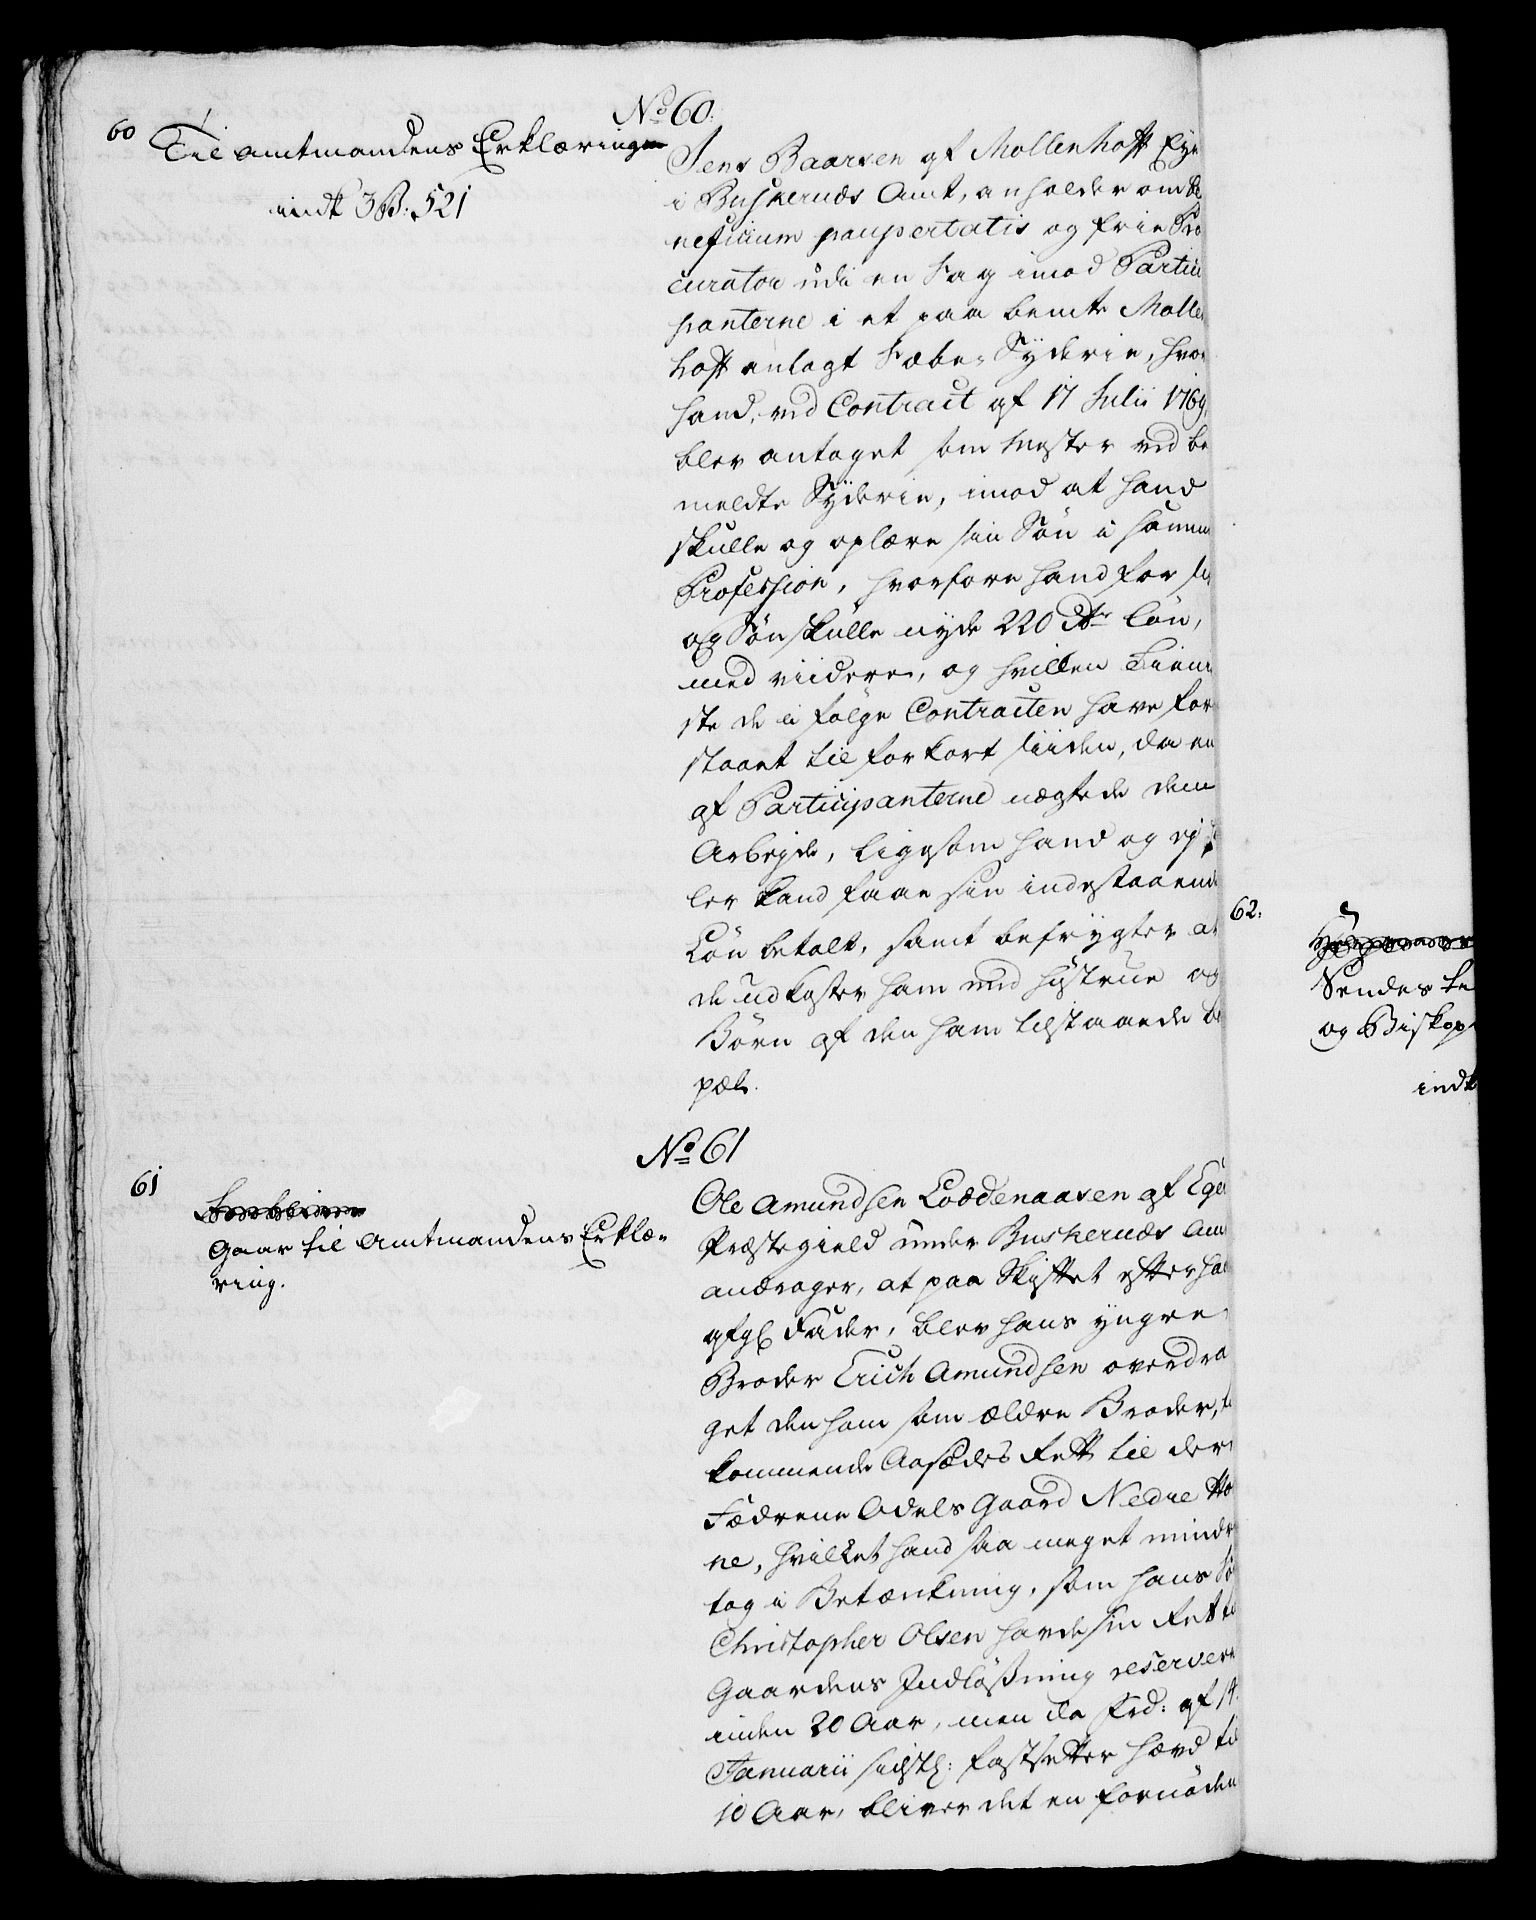 60
Til Amtmandens Erklæring
indk 3 B: 521
No 60.
Jens Baarsen af Mollenhoff Eye
i Buskeruds Amt, anholder om Be
neficium paupertatis og frie Pro
curator udi en Sag imod Partici
panterne i et paa bemte Mollen
hoff anlagt Sæbe-Syderie, hvor
hand, ved Contract af 17 Julii 1769,
blev antaget som Mester ved be
meldte Syderie, imod at hand
skulle og oplære sin Søn i samme
Profession, hvorfore hand for sig
og Søn skulle nyde 220 Rdr Løn,
med viidere, og hvilken Tiene
ste de i følge Contracten have fore
staaet til for kort siiden, da en
af Participanterne nægtede dem
Arbejde, ligesom hand og ej
ler kand faae sin indestaaende
Løn betalt, samt befrygter at
de udkaster ham med Hustrue og
Børn af den ham tilstaaede
pæl.
61
Gaar til Amtmandens Erklæ-
ring.
No 61
Ole Amundsen Loddenaasen af Eger
Præstegield under Buskeruds Amt
andrager, at paa Skiftet efter hans
afgl Fader, blev hans yngre
Broder Erich Amundsen overdra
get den ham som ældre Broder, til
kommende Aasædes Rett til deres
Fædrene Odels Gaard Nedre Ho
ne, hvilket hand saa meget mindre
tog i Betænkning, som hans Søn
Christopher Olsen havde sin Ret til
Gaardens Indløsning reserveret
inden 20 Aar, men da Frd: af 14
Januarii sidstl: fastsetter Hævd til
10 Aar, bliver det en fornøden
62:
Sendes til
og Biskop
indk